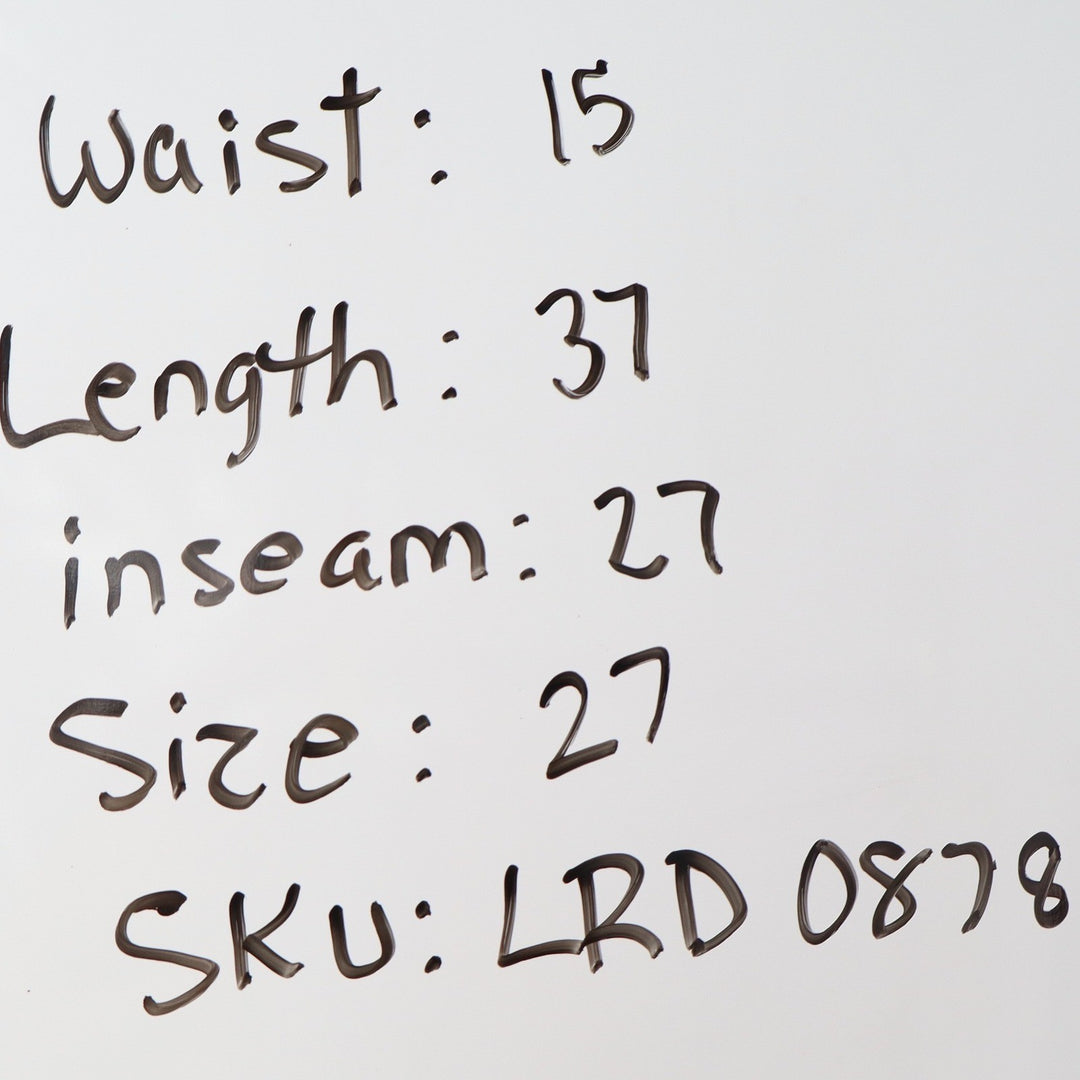 Waist: 15
Length: 37
inseam: 27
Size: 27
SKU: LRD 0878